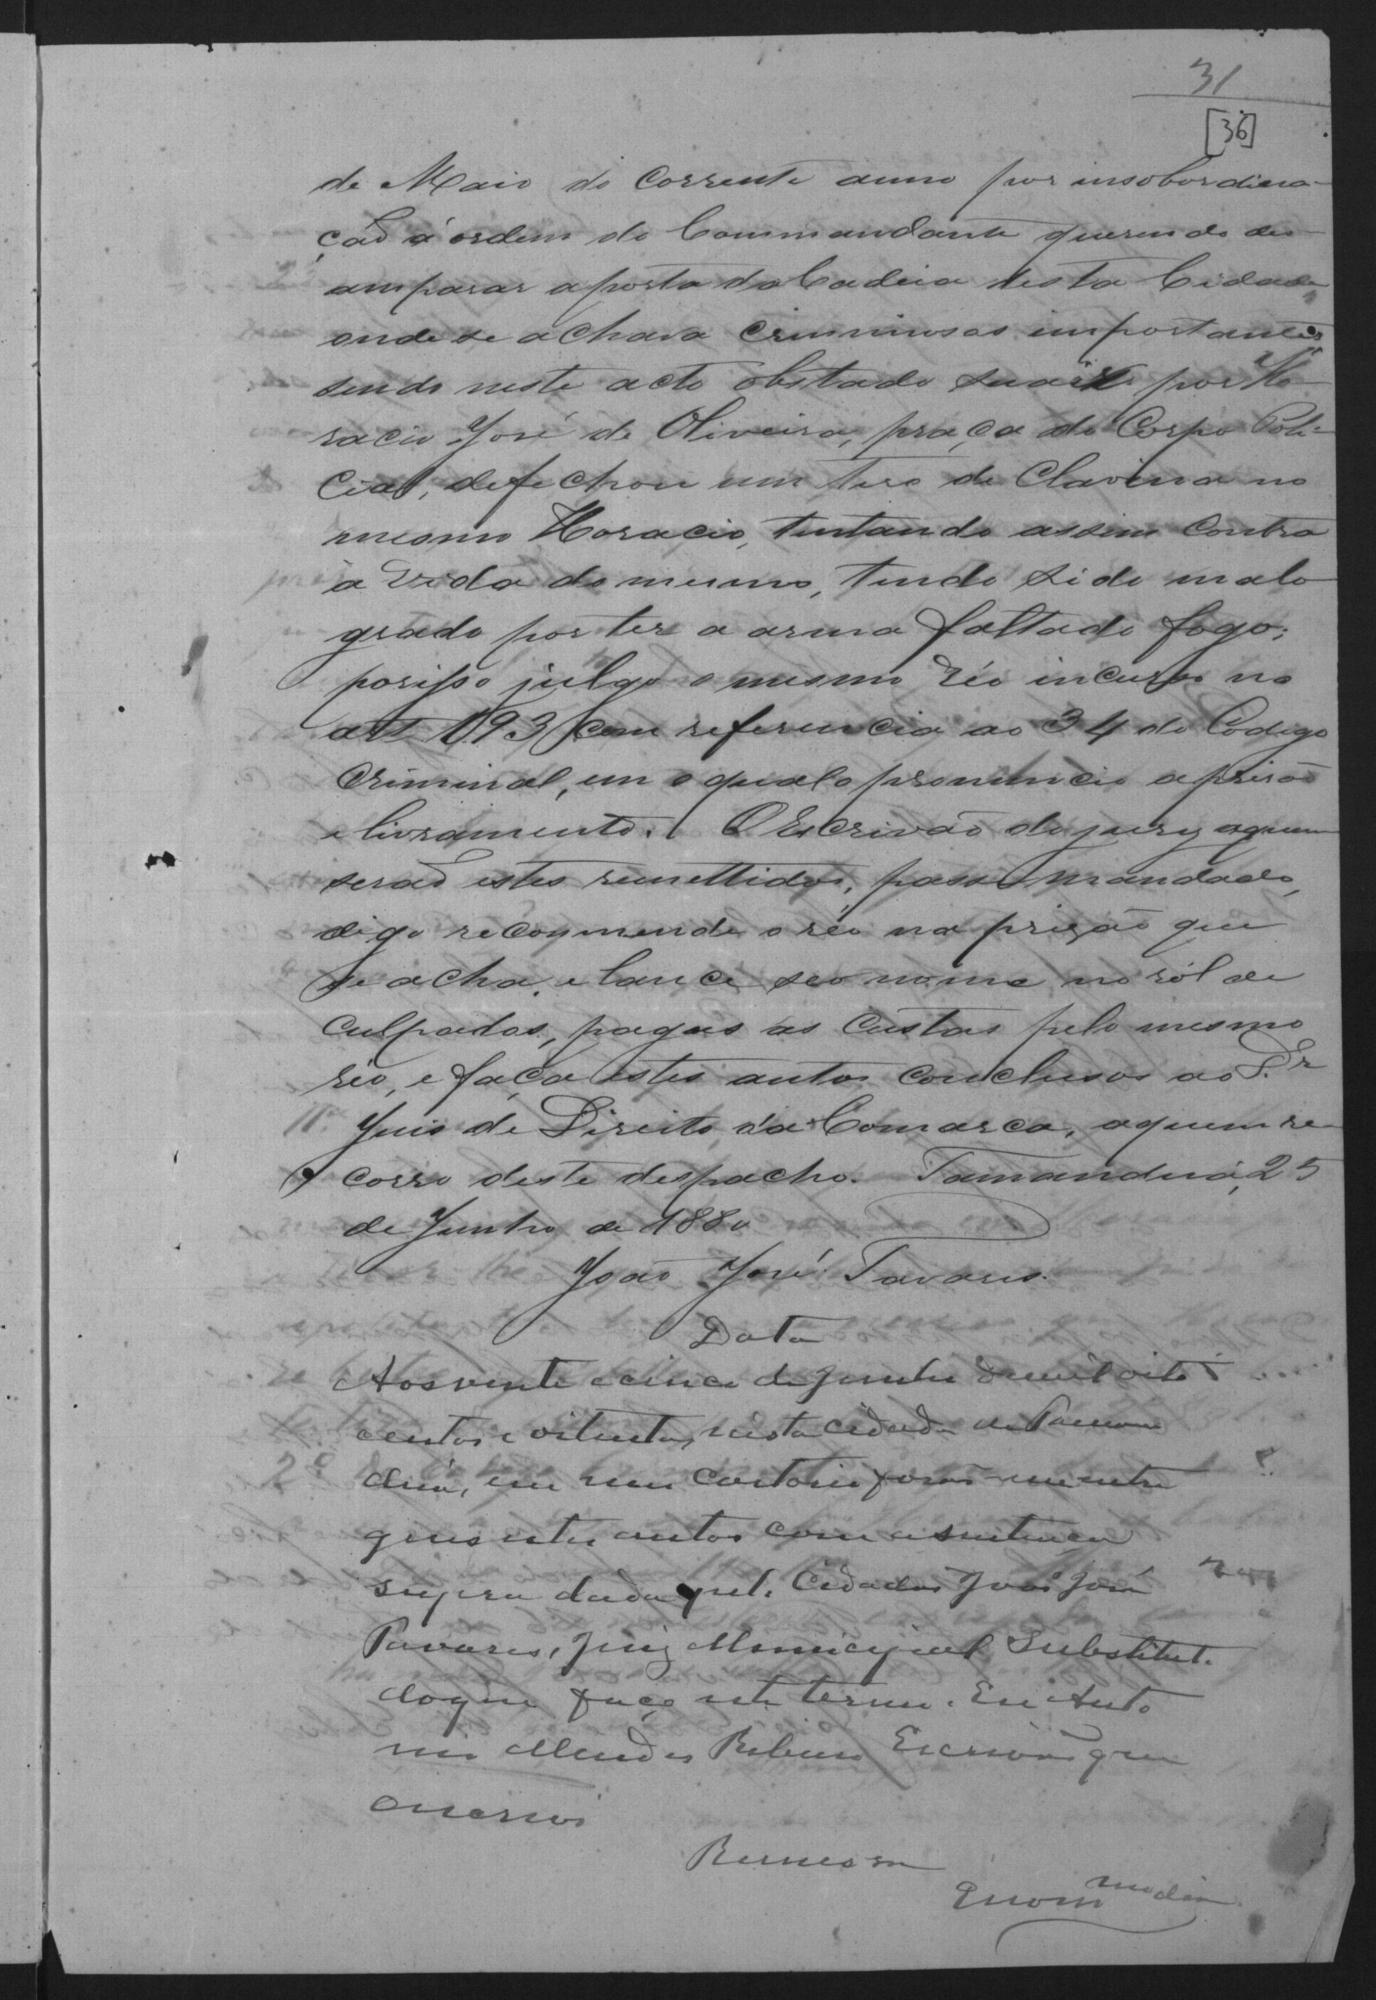 31
[36]
de Maio do corrente anno por insobordina-
ção á ordem do Commandante querendo des-
amparar a porta da Cadeia desta Cidade,
onde se achava criminosos importantes
sendo neste acto obstado por Ho-
racio José de Oliveira, praça do Corpo Poli-
cial, desfechou um tiro de Clavina no
mesmo Horacio, tentando assim contra
a vida do mesmo, tendo sido malo-
grado por ter a arma faltado fogo;
porisso julgo o mesmo réo incurso no
art 193 com referencia ao 34 do Codigo
Criminal, em o qual o pronuncio a prisão
e livramento. O Escrivão do jury aquem
serão estes remettidos, passe mandado,
digo recommende o réo na prizão que
se acha, e lance seo nome no ról de
culpados, pagas as custas pelo mesmo
réo, e faça estes autos conclusos ao Dr
Juis de Direito da Comarca, aquem re-
corro deste despacho. Tamanduá, 25
de Junho de 1880
João José Tavares.
Data
Aos vente e cinco de Junho de mil oito
centos e oitenta, nesta cidade de Taman
duá, em meu cartorio forão-me entre
gues estes autos com a sentença
supra dada pelo Cidadão João José
Tavares, Juiz Municipal Substituto
do que faço este termo. Eu Anto
nio Mendes Ribeiro Escrivão que
oescrevi
Remessa